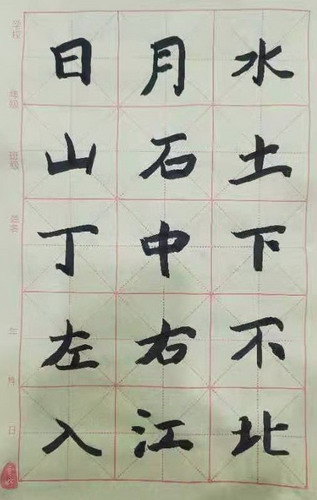 日月水
山石土
丁中下
左右不
入江北
学校
年级
班级
姓名
年
月
日